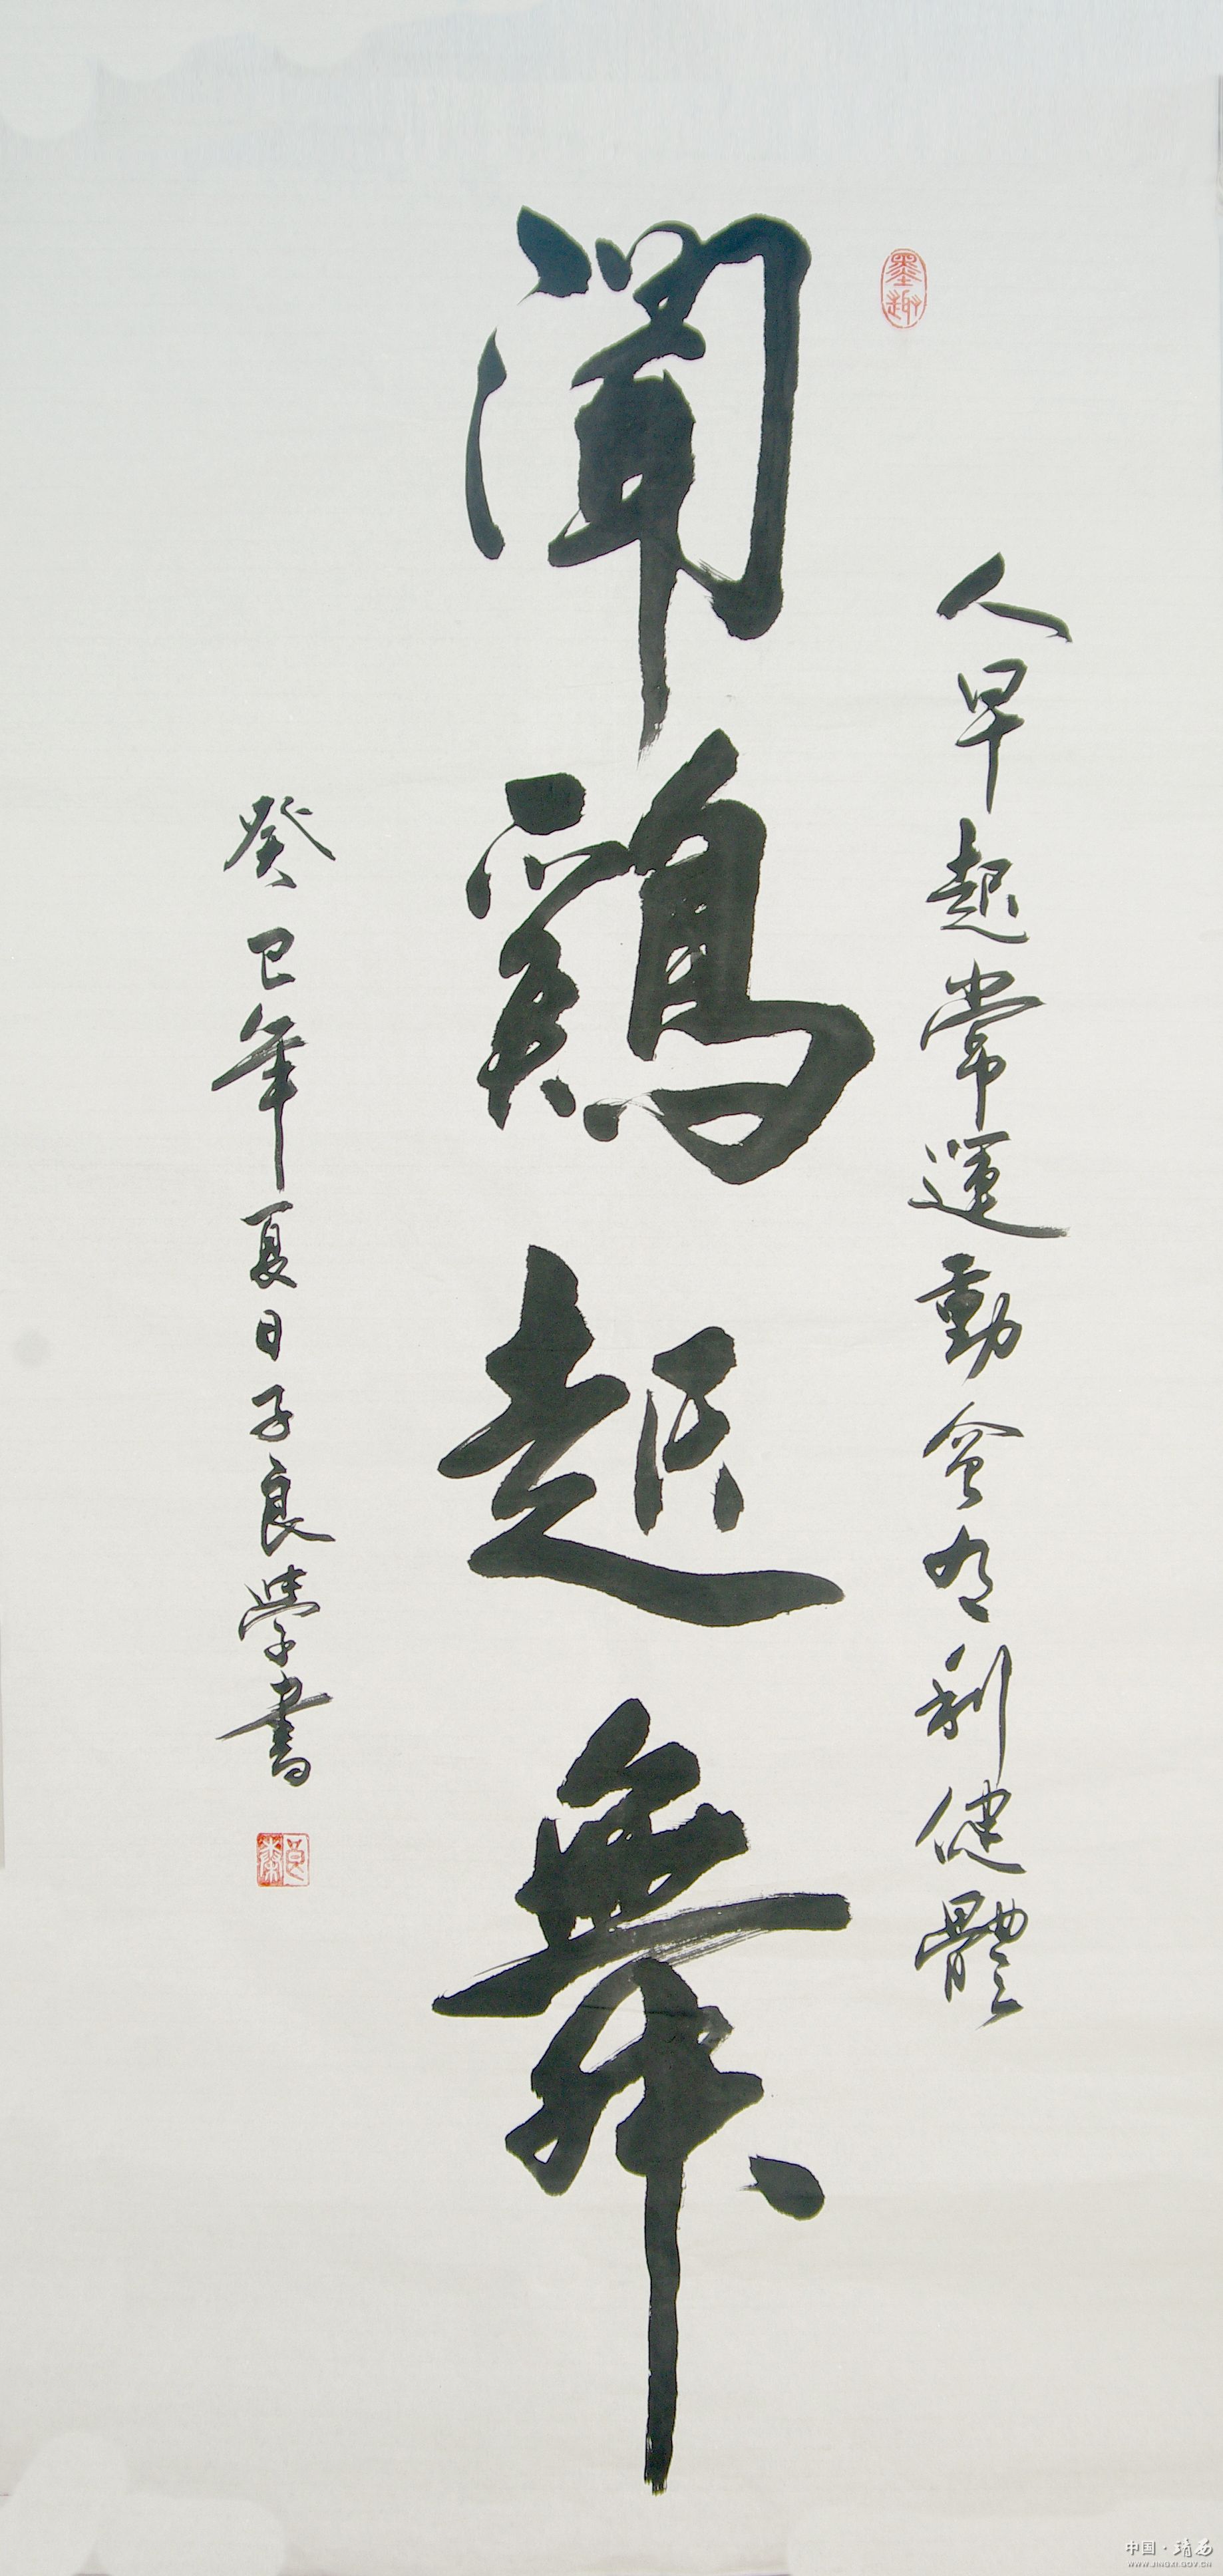 墨趣
人早起常運動會有利健體
聞鷄起舞
癸巳年夏日子良學書
中国·靖西
WWW.JINGXI.GOV.CN